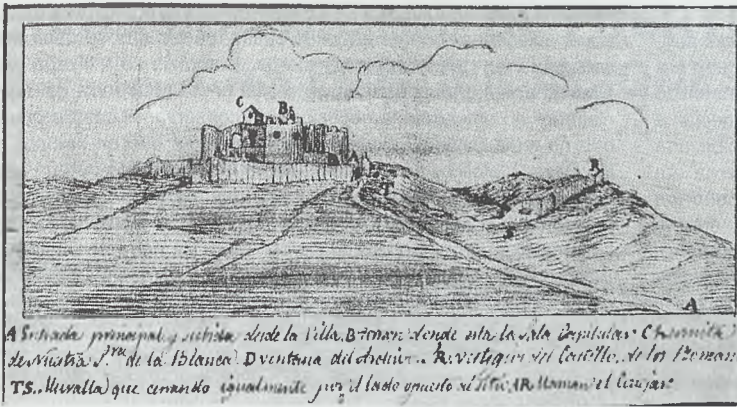 C B
R
A
A Entrada principal y subida desde la Villa. B donde esta la Sala Capitular C hermita
de Nuestra Sra de la Blanca. D ventana del Archivo. R. vestigios del Castillo de los Roman
TS. Muralla que cerrando igualmente por el lado opuesto al sitio AR llaman el